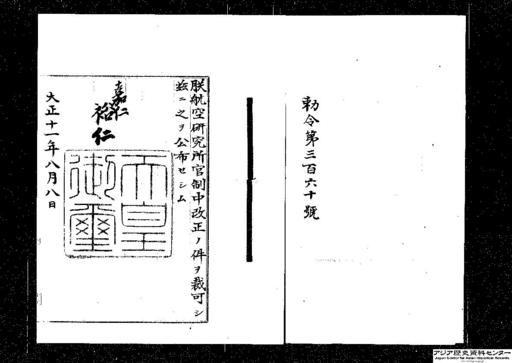 勅令第三百六十號
朕航空研究所官制中改正ノ件ヲ裁可シ
茲ニ之ヲ公布セシム
嘉仁
裕仁
大正十一年八月八日
天皇
御璽
アジア歴史資料センター
Japan Center for Asian Historical Records